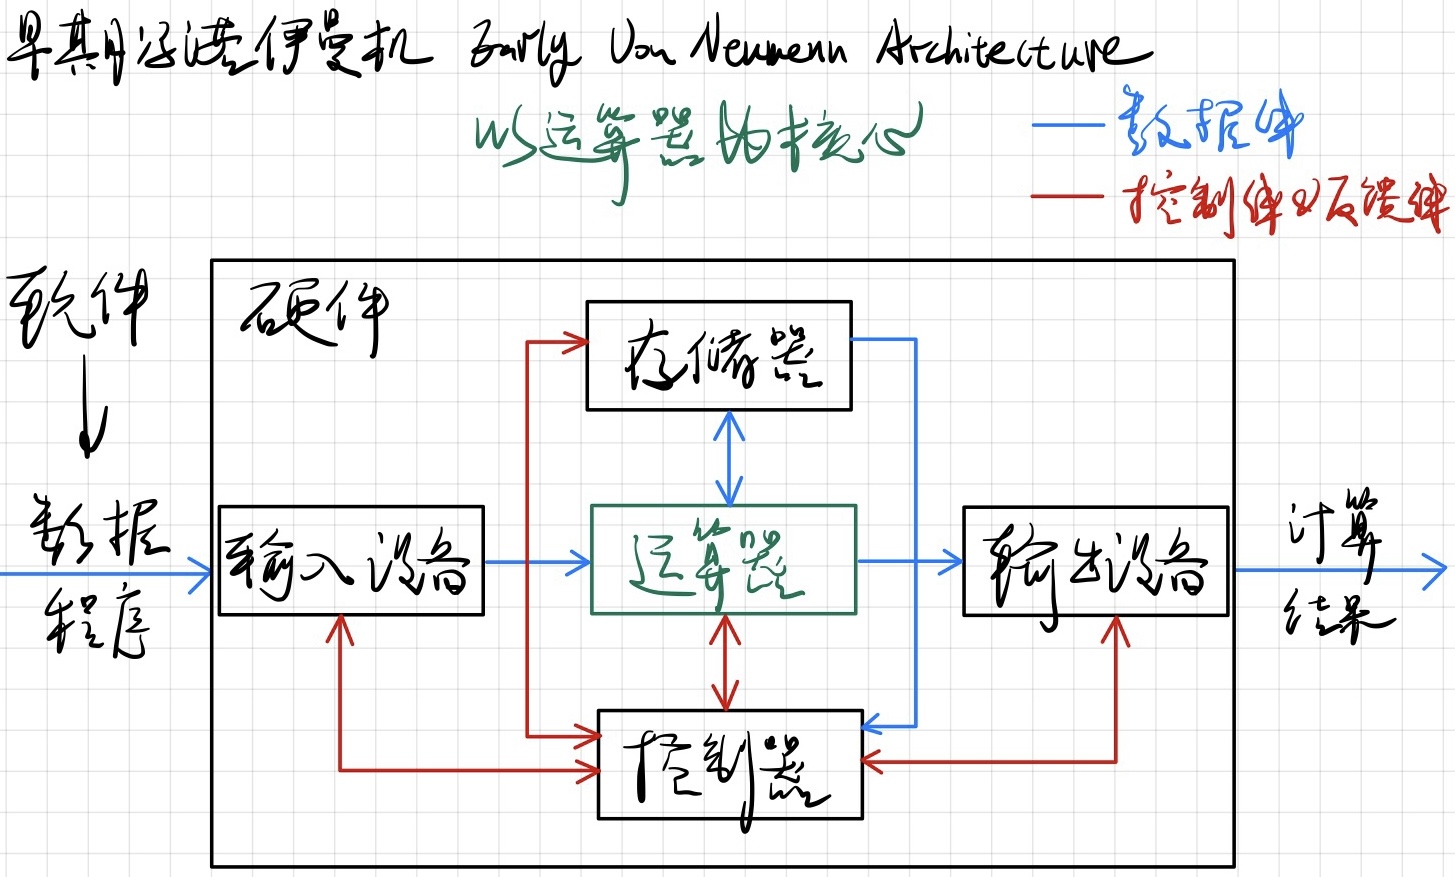 早期冯诺伊曼机 Early Von Neumenn Architecture
以运算器为核心
数据线
控制线及反馈线
软件
硬件
存储器
数据
程序
输入设备
运算器
输出设备
计算
结果
控制器